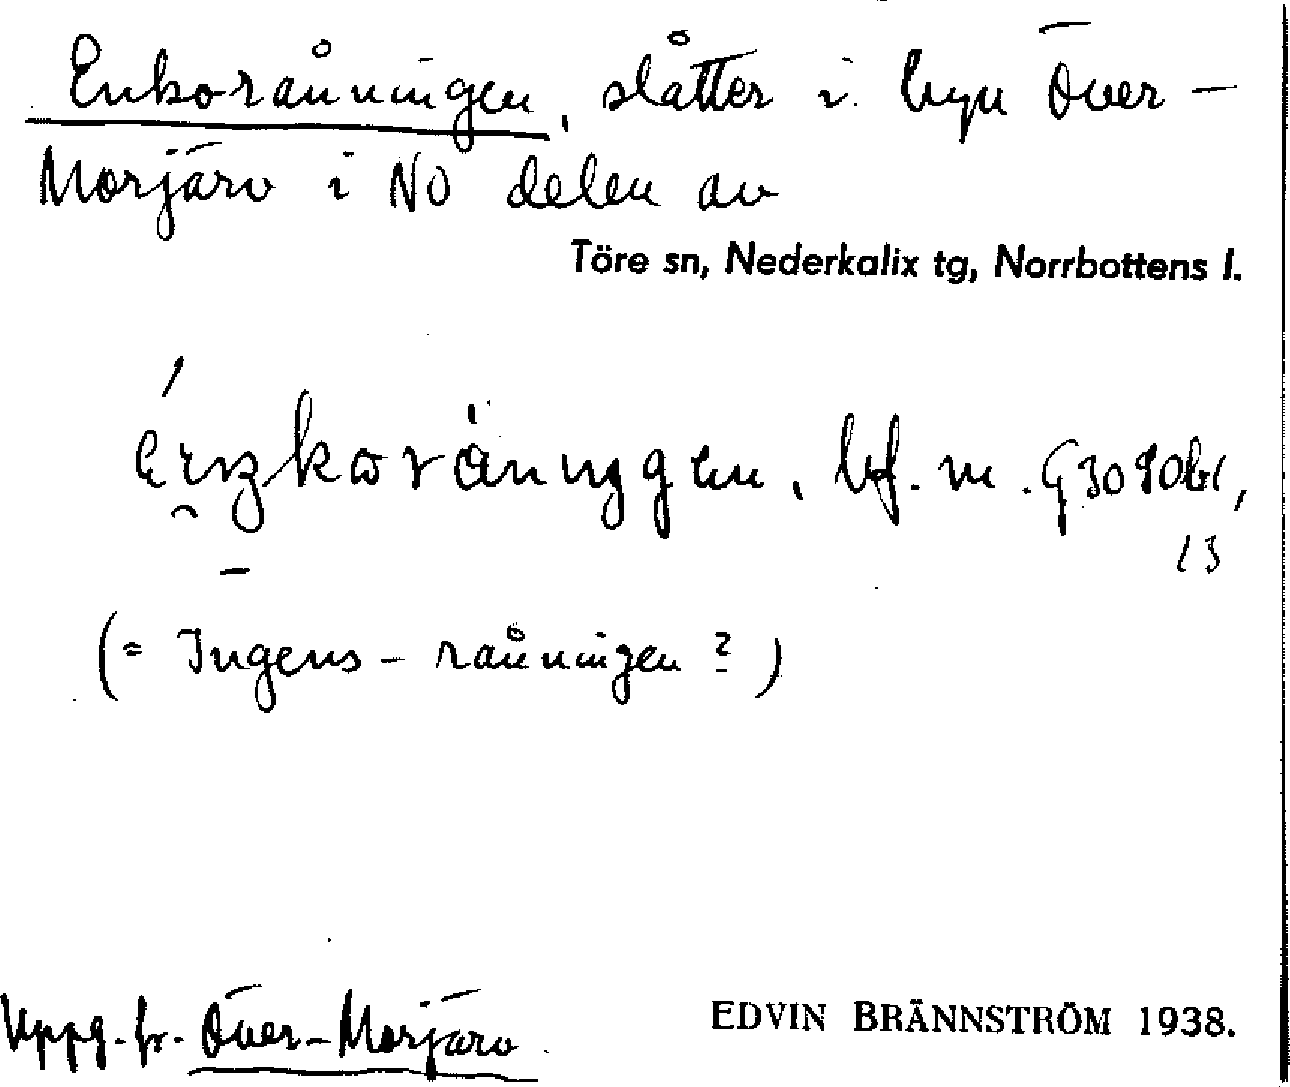 Enkorånningen, slåtter i byn Över-
Morjärv i NO delen av
Töre sn, Nederkalix tg, Norrbottens l.
bf. m.
(= Ingens-rånningen?)
Uppg. fr. Över-Morjärv
EDVIN BRÄNNSTRÖM 1938.